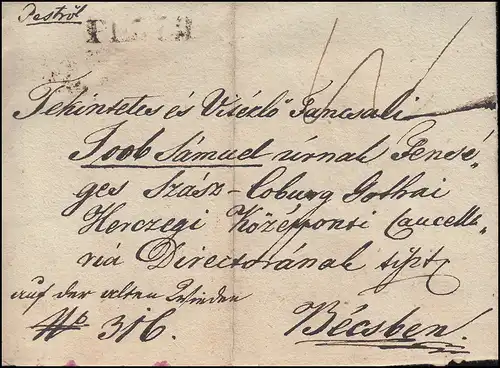 Pestről
PESTH
Tekintetes és Vitézlő Tancsali
Joob Sámuel úrnak Fensé-
ges Szász-Coburg Gothai
Herczegi Középponti Cancella-
ria Directorának tiszt
auf der alten Wieden
No 316.
Bécsben.